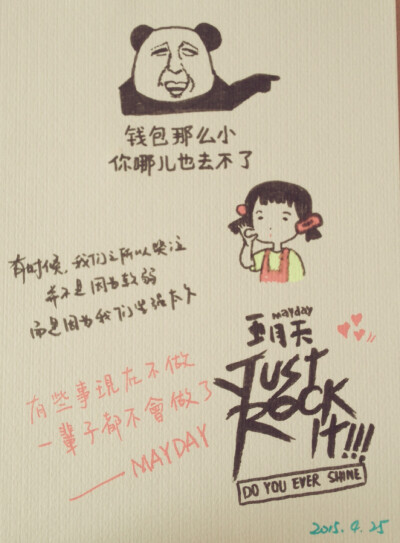 钱包那么小
你哪儿也去不了
有时候，我们之所以哭泣
并不是因为软弱
而是因为我们坚强太久
有些事現在不做
一輩子都不會做了
——MAYDAY
mayday
五月天
JUST
ROCK
it!!!
DO YOU EVER SHINE
2015.4.25